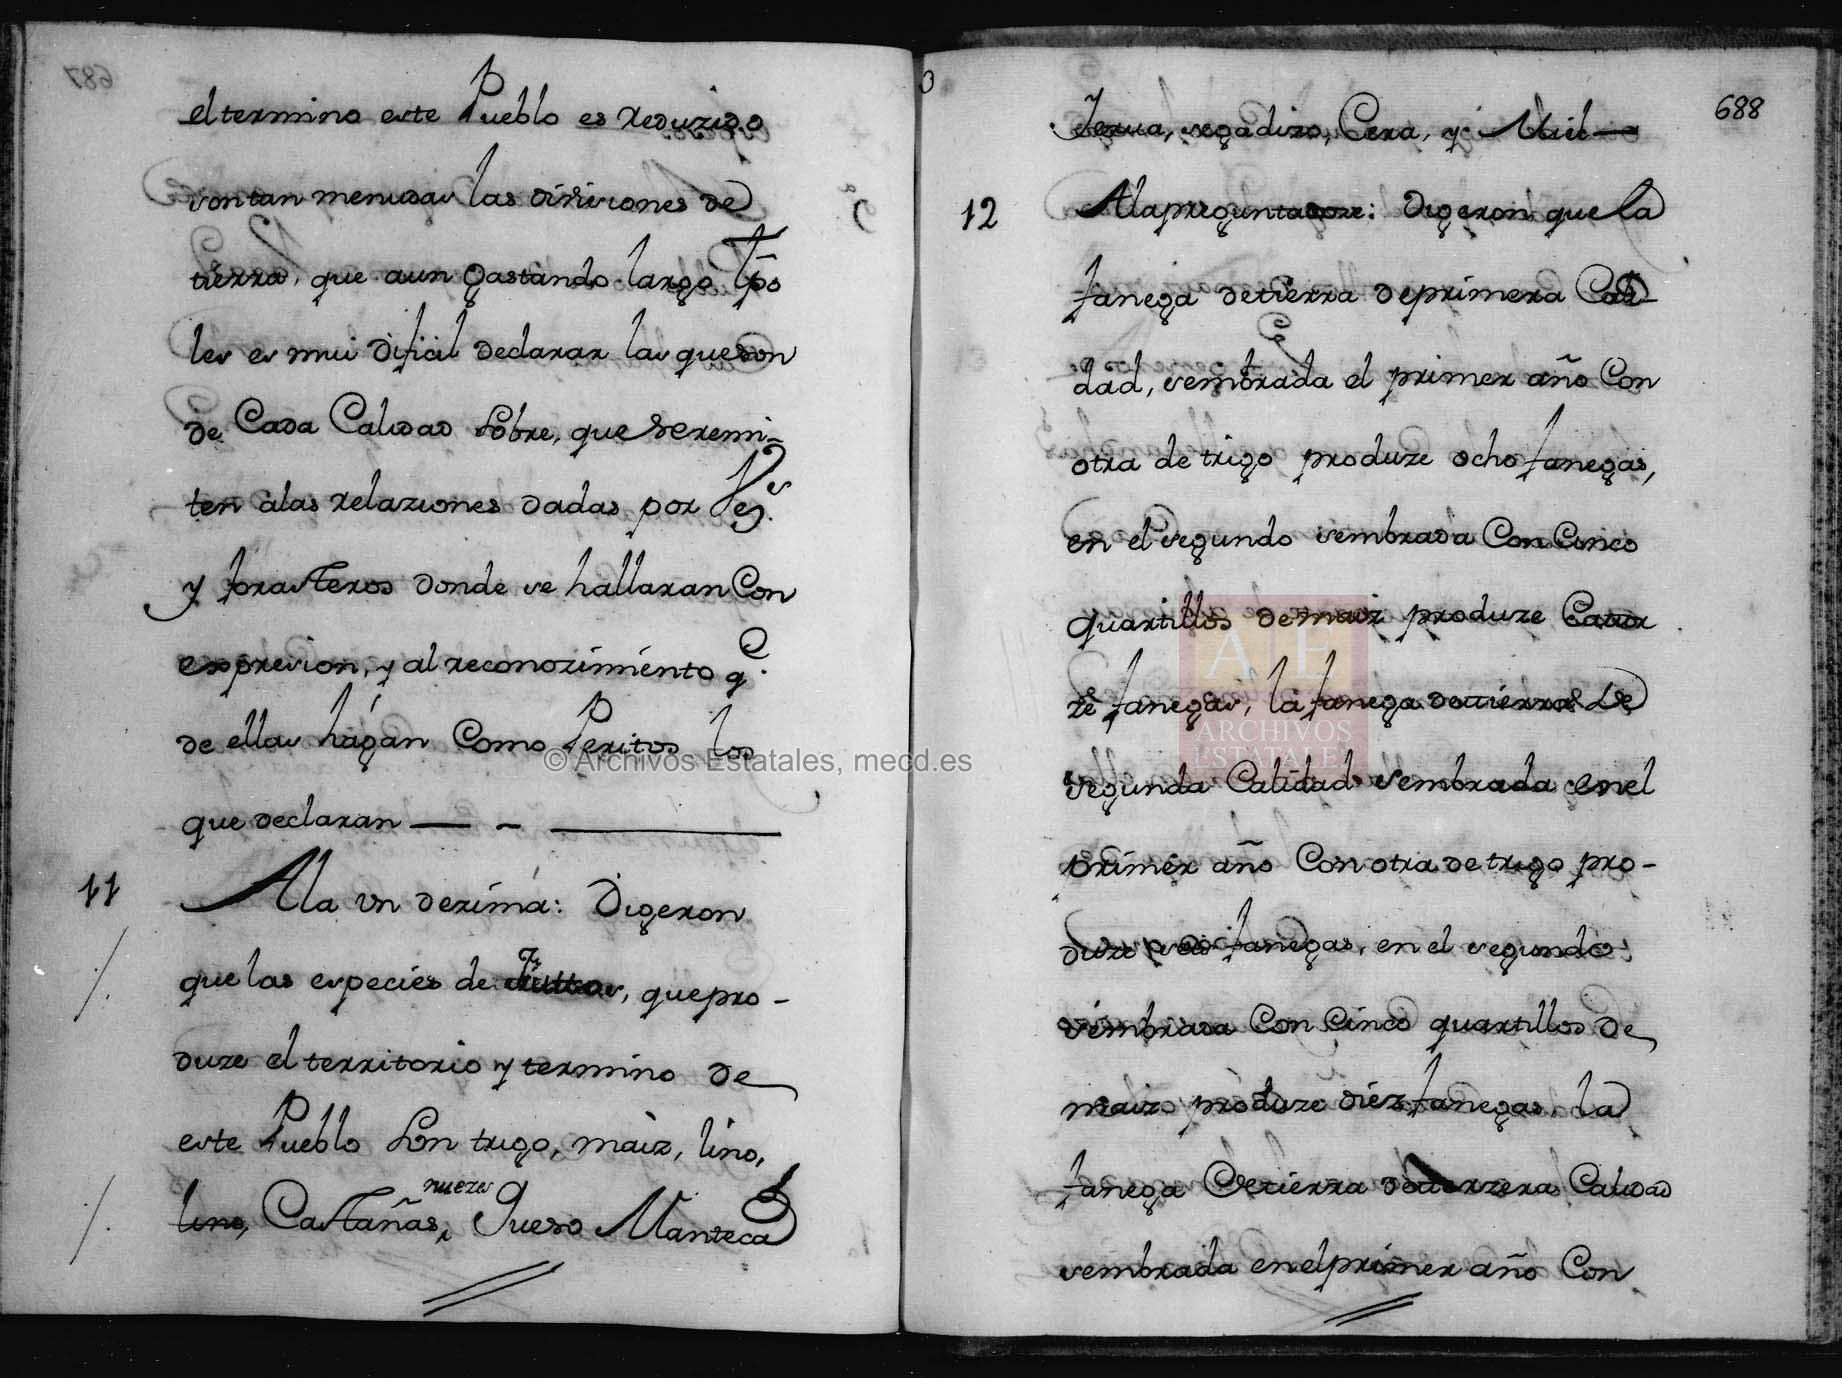 el termino este Pueblo es Reduzido
son tan menudas las divisiones de
tierra, que aun gastando largo tpõ
les es mui dificil declarar las que son
de Cada Calidad sobre, que se remi-
ten alas relaziones dadas por Vez.s
y forasteros donde se hallaran Con
expresion, y al reconozimiento q.e
de ellas hágan Como Peritos los
que declaran
11
A la un dezima: Digeron
que las especies de frutos, que pro-
duze el territorio y termino de
este Pueblo son trigo, maiz, lino,
nuezes
lino, Castañas, Queso Manteca
687
688
Yerua, segadizo, Cera, y Miel
12
A la pregunta doze: Digeron que la
fanega de tierra de primera Cali-
dad, sembrada el primer año Con
otra de trigo produze ocho fanegas,
en el segundo sembrada Con Cinco
quartillos de maiz produze Cator
ze fanegas, la fanega de tierra de
segunda Calidad sembrada en el
primer año Con otra de trigo pro-
duze seis fanegas, en el segundo
sembrada Con Cinco quartillos de
maiz produze diez fanegas, la
fanega de tierra de terzera Calidad
sembrada en el primer año Con
A E
ARCHIVOS
ESTATALES
© Archivos Estatales, mecd.es